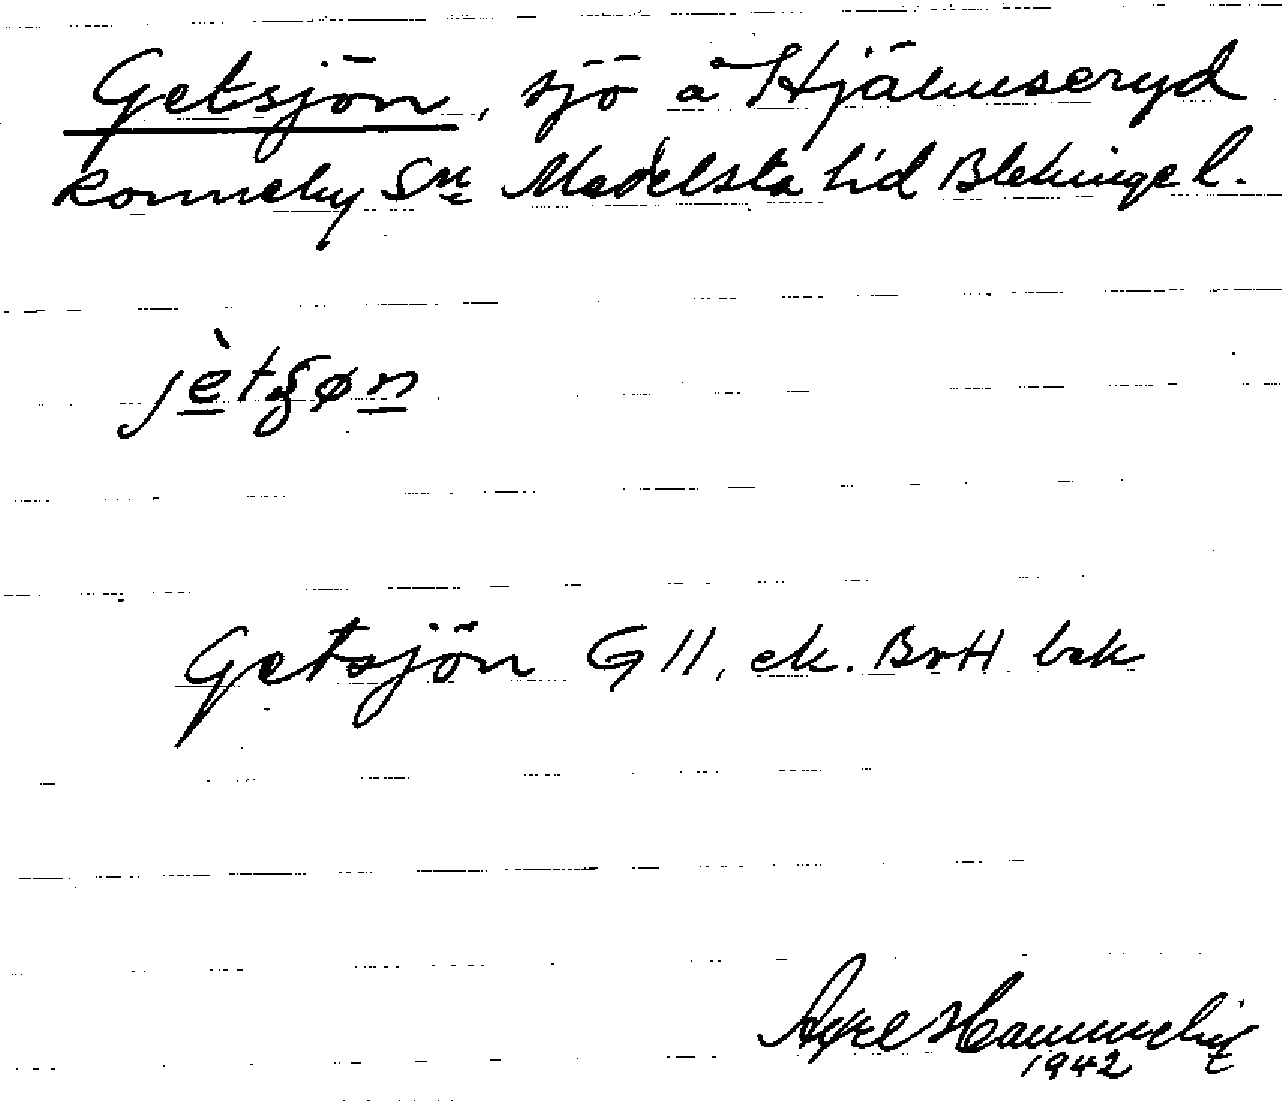 Getsjön, sjö å Hjälmseryd
Ronneby Sn Medelsta hd Blekinge l.
jètʃøn
Getsjön G 11, ek. BvH bek
Axel Hammelig
1942